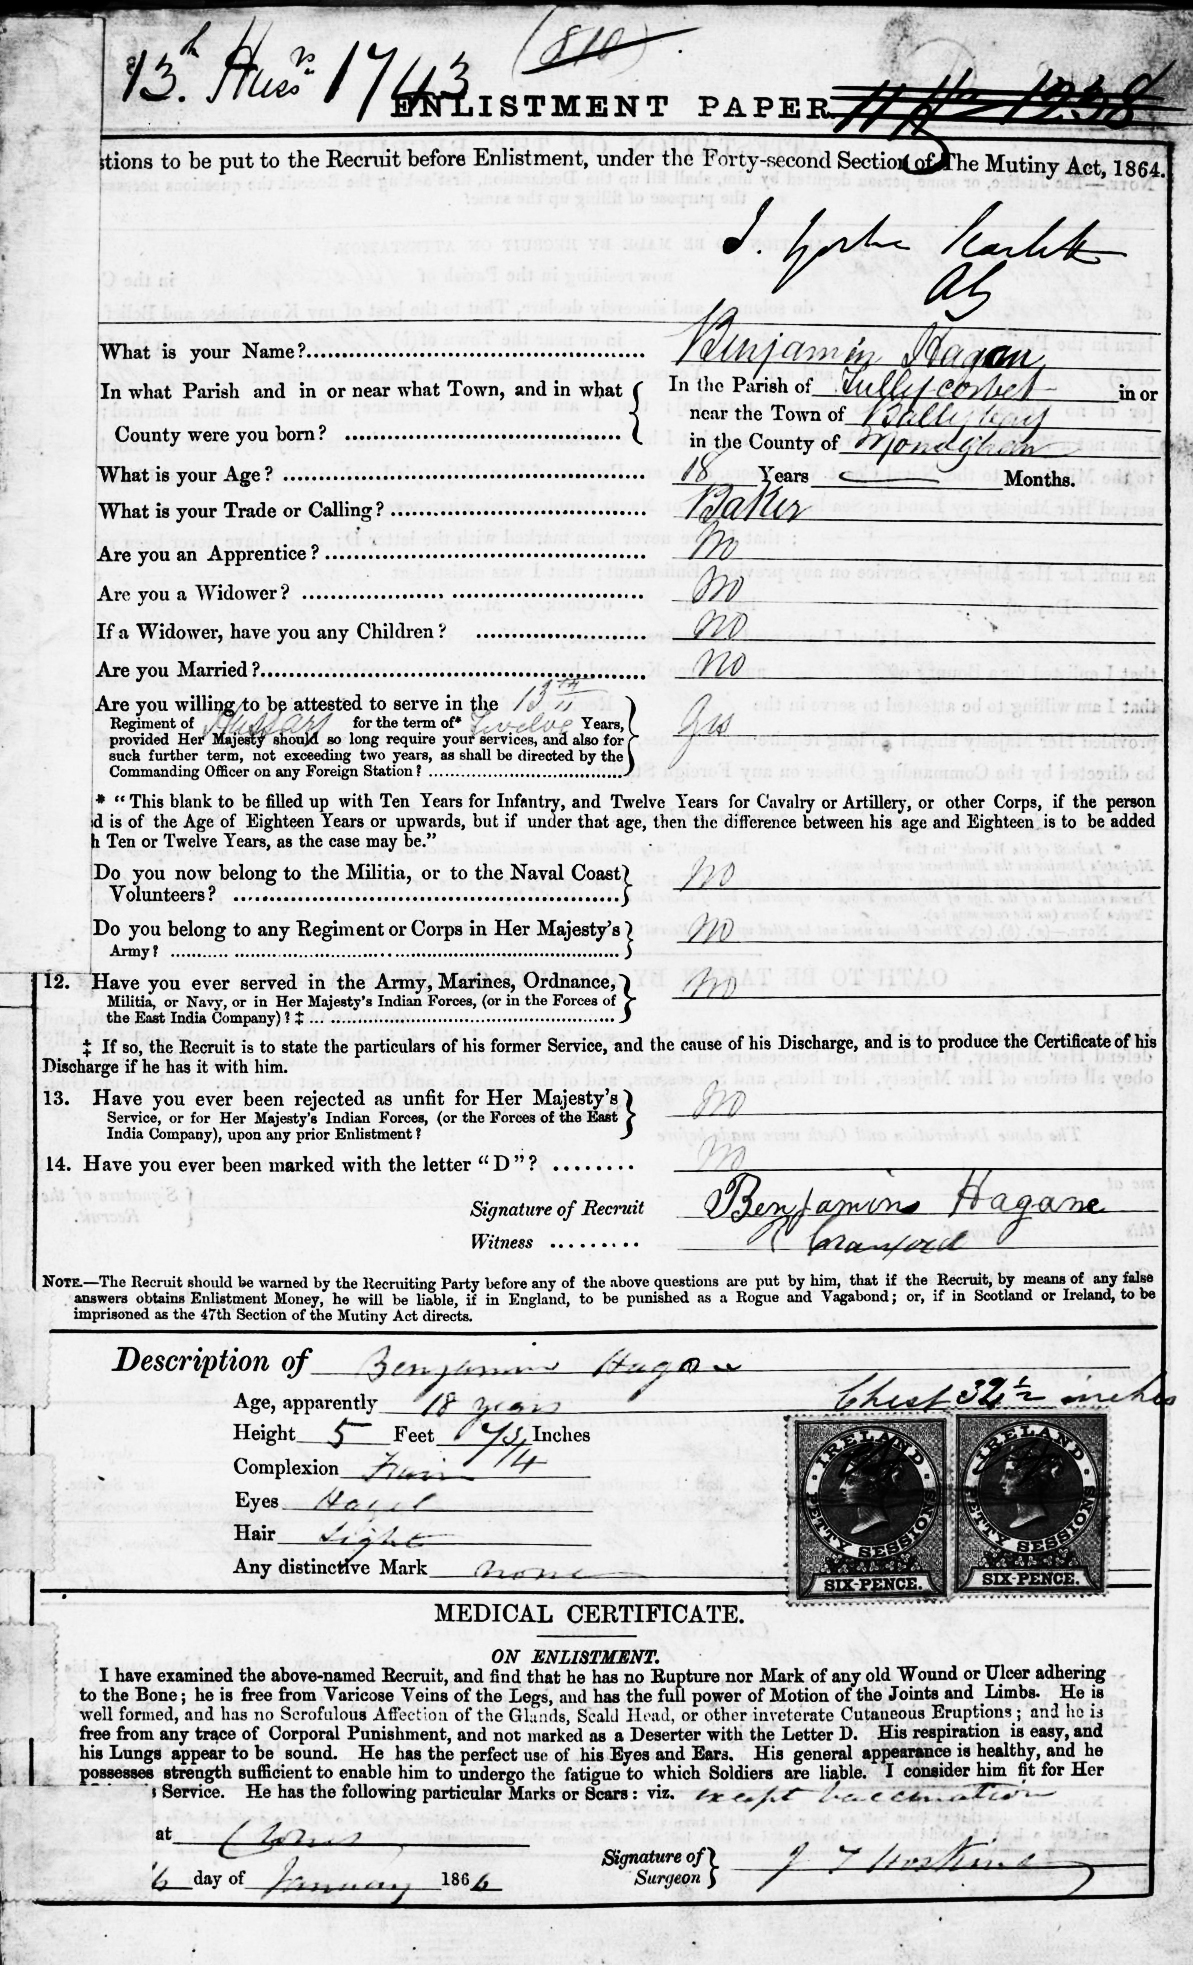 13th Hussrs 1743 (810)
ENLISTMENT PAPER. 11th 1238
stions to be put to the Recruit before Enlistment, under the Forty-second Section of The Mutiny Act, 1864.
J. Yorke Scarlett
AG
What is your Name? Benjamin Hagan
In what Parish and in or near what Town, and in what County were you born? In the Parish of Tullycorbet in or
near the Town of Ballybay
in the County of Monaghan
What is your Age? 18 Years — Months.
What is your Trade or Calling? Baker
Are you an Apprentice? No
Are you a Widower? No
If a Widower, have you any Children? No
Are you Married? No
Are you willing to be attested to serve in the 13th
Regiment of Hussars for the term of* Twelve Years, Yes
provided Her Majesty should so long require your services, and also for
such further term, not exceeding two years, as shall be directed by the
Commanding Officer on any Foreign Station?
* "This blank to be filled up with Ten Years for Infantry, and Twelve Years for Cavalry or Artillery, or other Corps, if the person
d is of the Age of Eighteen Years or upwards, but if under that age, then the difference between his age and Eighteen is to be added
h Ten or Twelve Years, as the case may be."
Do you now belong to the Militia, or to the Naval Coast
Volunteers? No
Do you belong to any Regiment or Corps in Her Majesty's
Army? No
12. Have you ever served in the Army, Marines, Ordnance, No
Militia, or Navy, or in Her Majesty's Indian Forces, (or in the Forces of
the East India Company)? ‡
‡ If so, the Recruit is to state the particulars of his former Service, and the cause of his Discharge, and is to produce the Certificate of his
Discharge if he has it with him.
13. Have you ever been rejected as unfit for Her Majesty's No
Service, or for Her Majesty's Indian Forces, (or the Forces of the East
India Company), upon any prior Enlistment?
14. Have you ever been marked with the letter "D"? No
Signature of Recruit Benjamin Hagane
Witness Cranford
NOTE.—The Recruit should be warned by the Recruiting Party before any of the above questions are put by him, that if the Recruit, by means of any false
answers obtains Enlistment Money, he will be liable, if in England, to be punished as a Rogue and Vagabond; or, if in Scotland or Ireland, to be
imprisoned as the 47th Section of the Mutiny Act directs.
Description of Benjamin Hagan
Age, apparently 18 years Chest 32½ inches
Height 5 Feet 7 3/4 Inches
Complexion Fair
Eyes Hazel
Hair Light
Any distinctive Mark none
IRELAND PETTY SESSIONS SIX-PENCE.
IRELAND PETTY SESSIONS SIX-PENCE.
MEDICAL CERTIFICATE.
ON ENLISTMENT.
I have examined the above-named Recruit, and find that he has no Rupture nor Mark of any old Wound or Ulcer adhering
to the Bone; he is free from Varicose Veins of the Legs, and has the full power of Motion of the Joints and Limbs. He is
well formed, and has no Scrofulous Affection of the Glands, Scald Head, or other inveterate Cutaneous Eruptions; and he is
free from any trace of Corporal Punishment, and not marked as a Deserter with the Letter D. His respiration is easy, and
his Lungs appear to be sound. He has the perfect use of his Eyes and Ears. His general appearance is healthy, and he
possesses strength sufficient to enable him to undergo the fatigue to which Soldiers are liable. I consider him fit for Her
Service. He has the following particular Marks or Scars: viz. except vaccination
at Clones
6 day of January 1866
Signature of Surgeon J T Hoskins